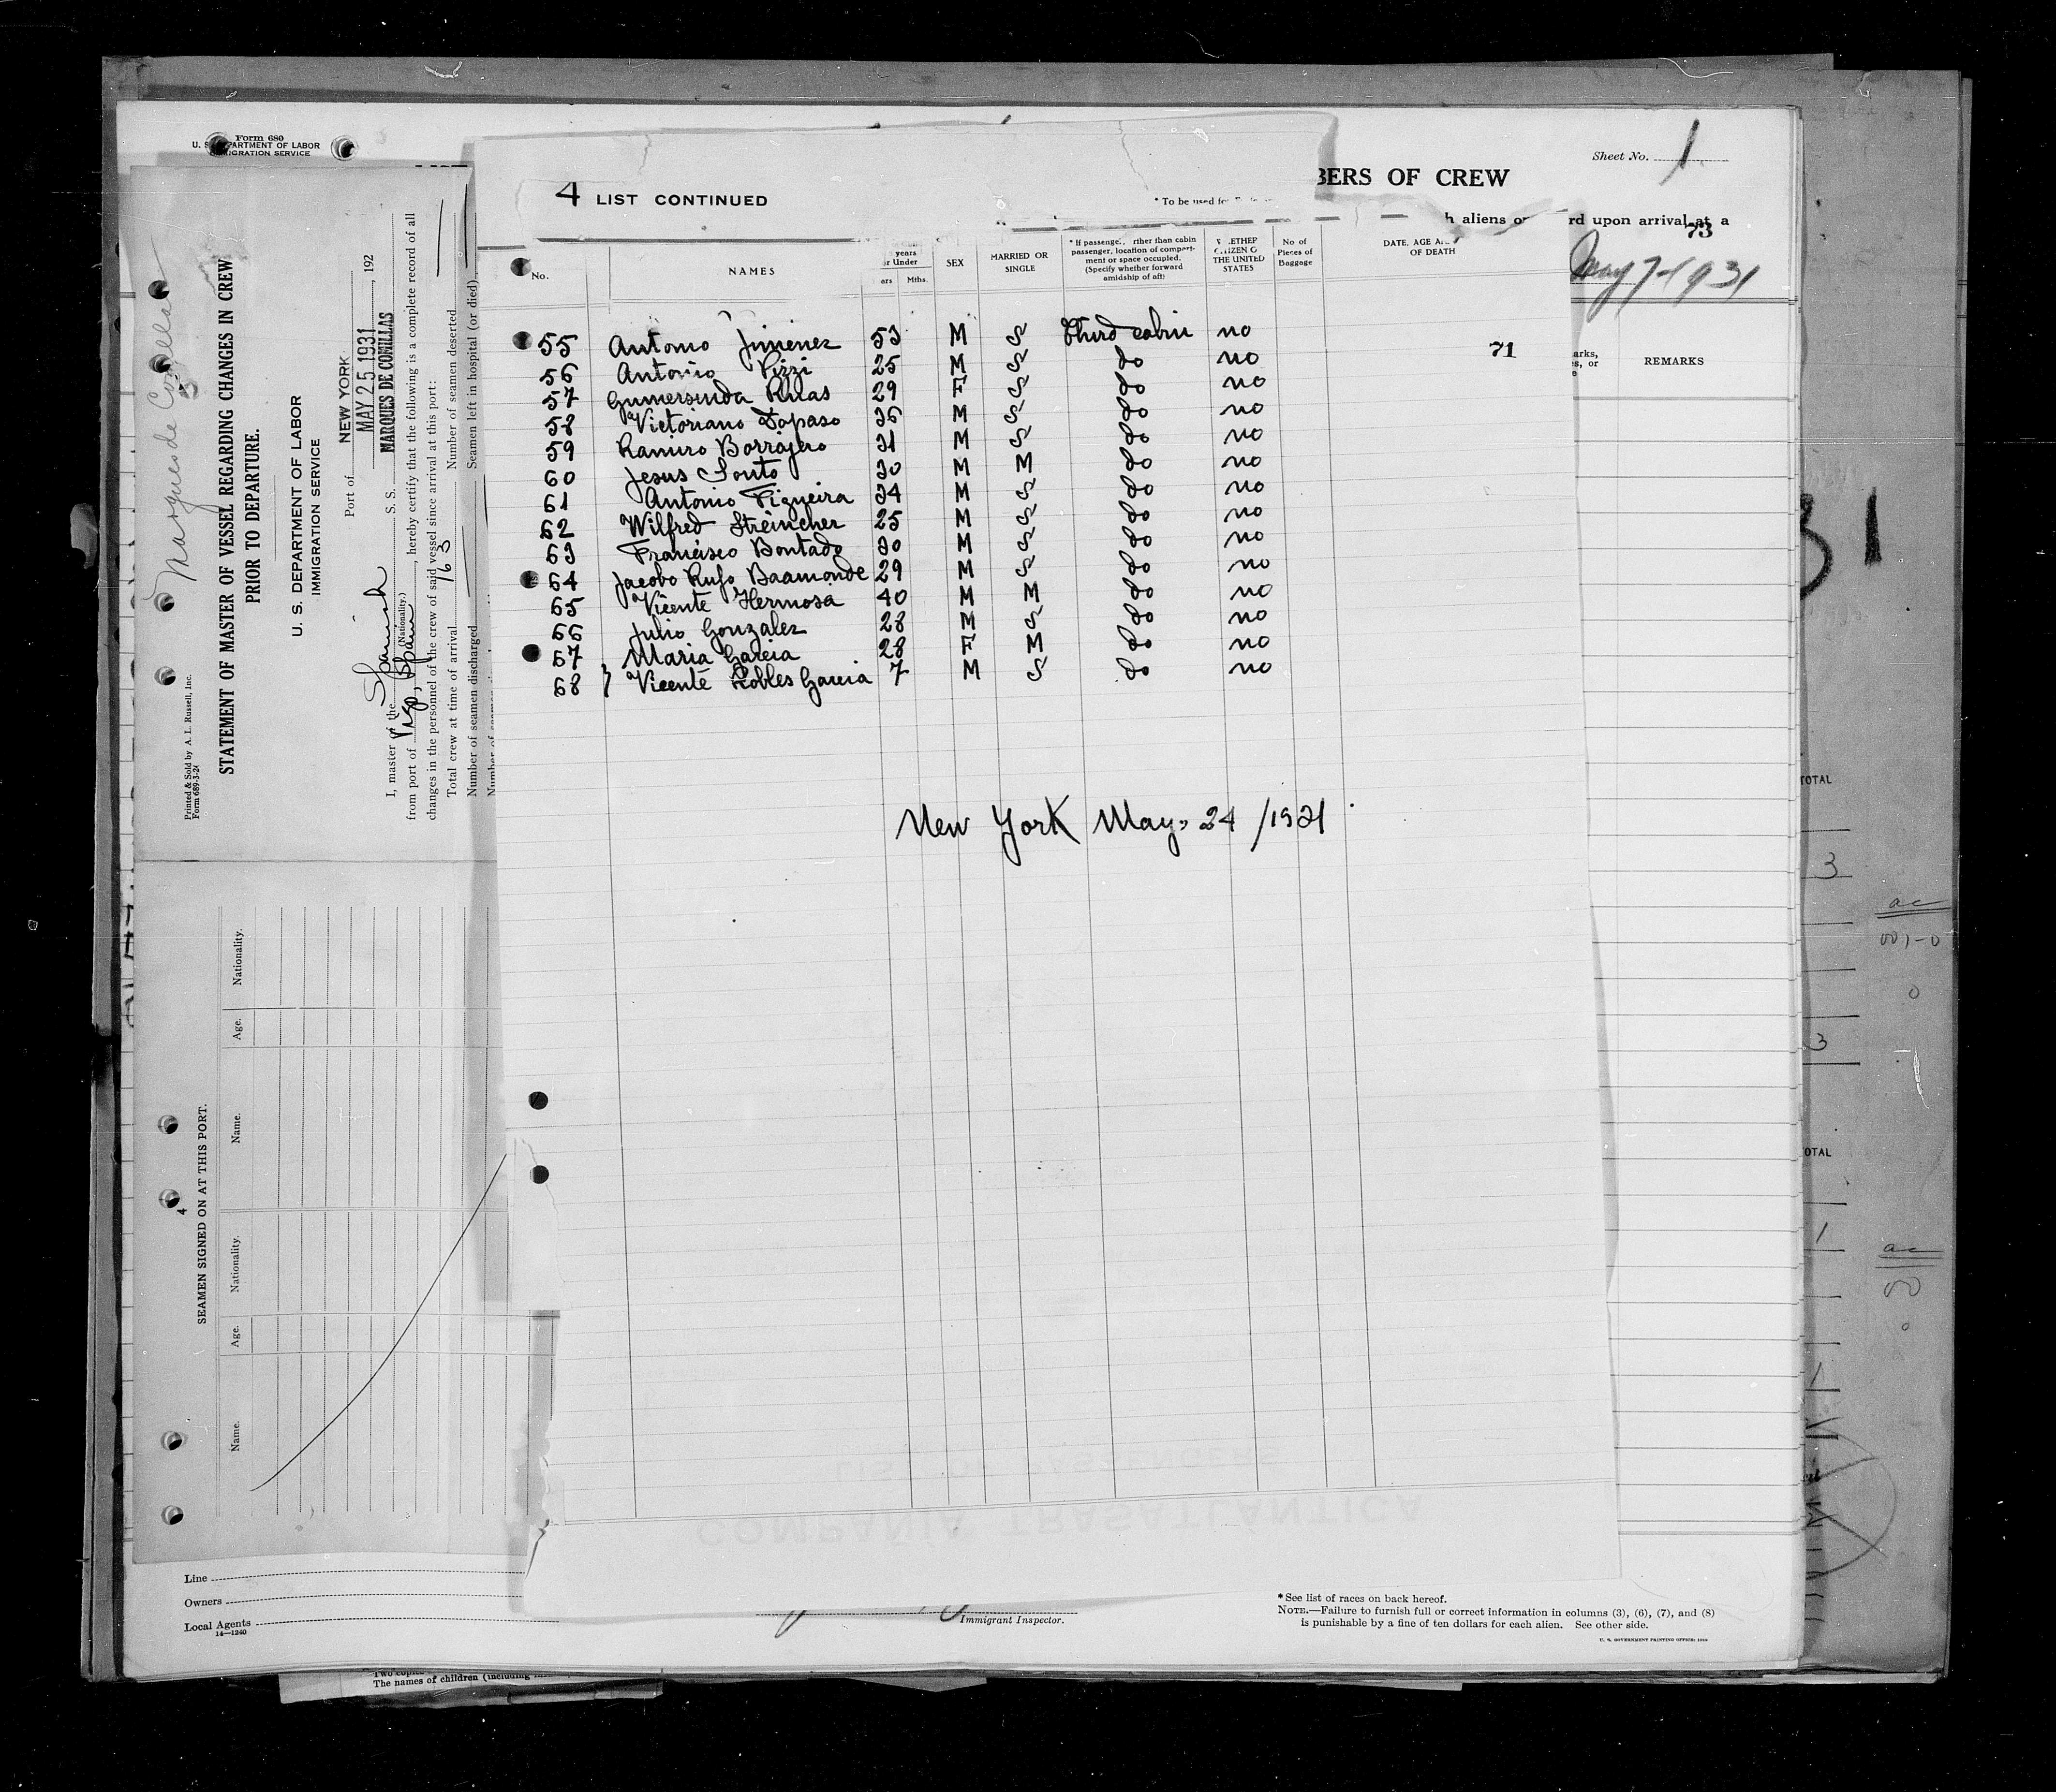 Form 680
U. S. DEPARTMENT OF LABOR
IMMIGRATION SERVICE
Sheet No. 1
BERS OF CREW
h aliens on rd upon arrival at a
73
May 7-1931
arks,
s, or
REMARKS
Marques de Comillas
Printed & Sold by A. L. Russell, Inc.
Form 689-3-24
STATEMENT OF MASTER OF VESSEL REGARDING CHANGES IN CREW
PRIOR TO DEPARTURE.
U. S. DEPARTMENT OF LABOR
IMMIGRATION SERVICE
Port of NEW YORK
MAY 25 1931, 192
I, master of the Spanish S. S. MARQUES DE COMILLAS
(Nationality.)
from port of Vigo, Spain, hereby certify that the following is a complete record of all
changes in the personnel of the crew of said vessel since arrival at this port:
Total crew at time of arrival 163 Number of seamen deserted
Number of seamen discharged Seamen left in hospital (or died)
4
SEAMEN SIGNED ON AT THIS PORT.
Name. Age. Nationality. Name. Age. Nationality.
4 LIST CONTINUED
* To be used for
No. NAMES years or Under ars Mths. SEX MARRIED OR SINGLE * If passenger, other than cabin passenger, location of compartment or space occupied. (Specify whether forward amidship of aft) WHETHER CITIZEN OF THE UNITED STATES No of Pieces of Baggage DATE, AGE AND OF DEATH
71
55 Antonio Jimenez 53 M S Third cabin no
56 Antonio Pizzi 25 M S do no
57 Gumersinda Rivas 29 F S do no
58 Victoriano Dopaso 36 M S do no
59 Ramiro Borrajero 31 M S do no
60 Jesus Souto 30 M M do no
61 Antonio Figueira 34 M S do no
62 Wilfred Streincher 25 M S do no
63 Francisco Bontade 30 M S do no
64 Jacobo Rufo Baamonde 29 M S do no
65 Vicente Hermosa 40 M M do no
66 Julio Gonzalez 28 M S do no
67 Maria Garcia 28 F M do no
68 Vicente Robles Garcia 7 M S do no
New York May 24 /1931
TOTAL
3
ac
0
3
OTAL
1
ac
Line
Owners
Local Agents
14—1240
Immigrant Inspector.
* See list of races on back hereof.
NOTE.—Failure to furnish full or correct information in columns (3), (6), (7), and (8)
is punishable by a fine of ten dollars for each alien. See other side.
U. S. GOVERNMENT PRINTING OFFICE:
LIST OF PASSENGERS
COMPAÑIA TRASATLANTICA
Two copies
The names of children (including